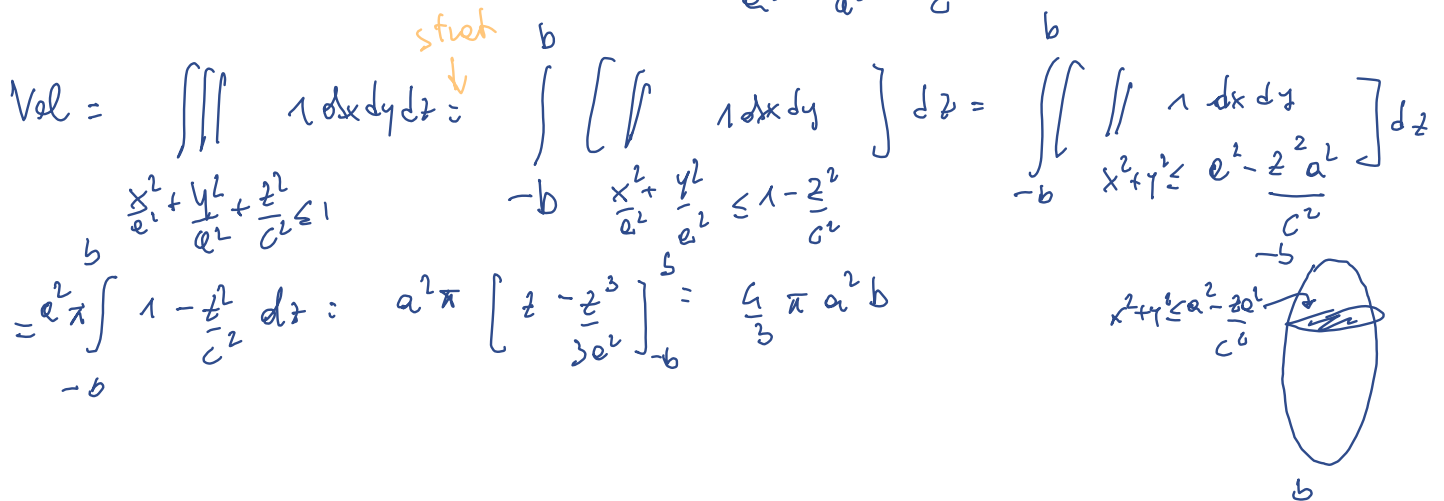 strat
Vol = ∭_{x²/a² + y²/a² + z²/c² ≤ 1} 1 dx dy dz = ∫_{-b}^{b} [ ∬_{x²/a² + y²/a² ≤ 1 - z²/c²} 1 dx dy ] dz = ∫_{-b}^{b} [ ∬_{x² + y² ≤ a² - z²a²/c²} 1 dx dy ] dz
= a²π ∫_{-b}^{b} 1 - z²/c² dz = a²π [ z - z³/3c² ]_{-b}^{b} = 4/3 π a² b
-b
x² + y² ≤ a² - za²/c²
b